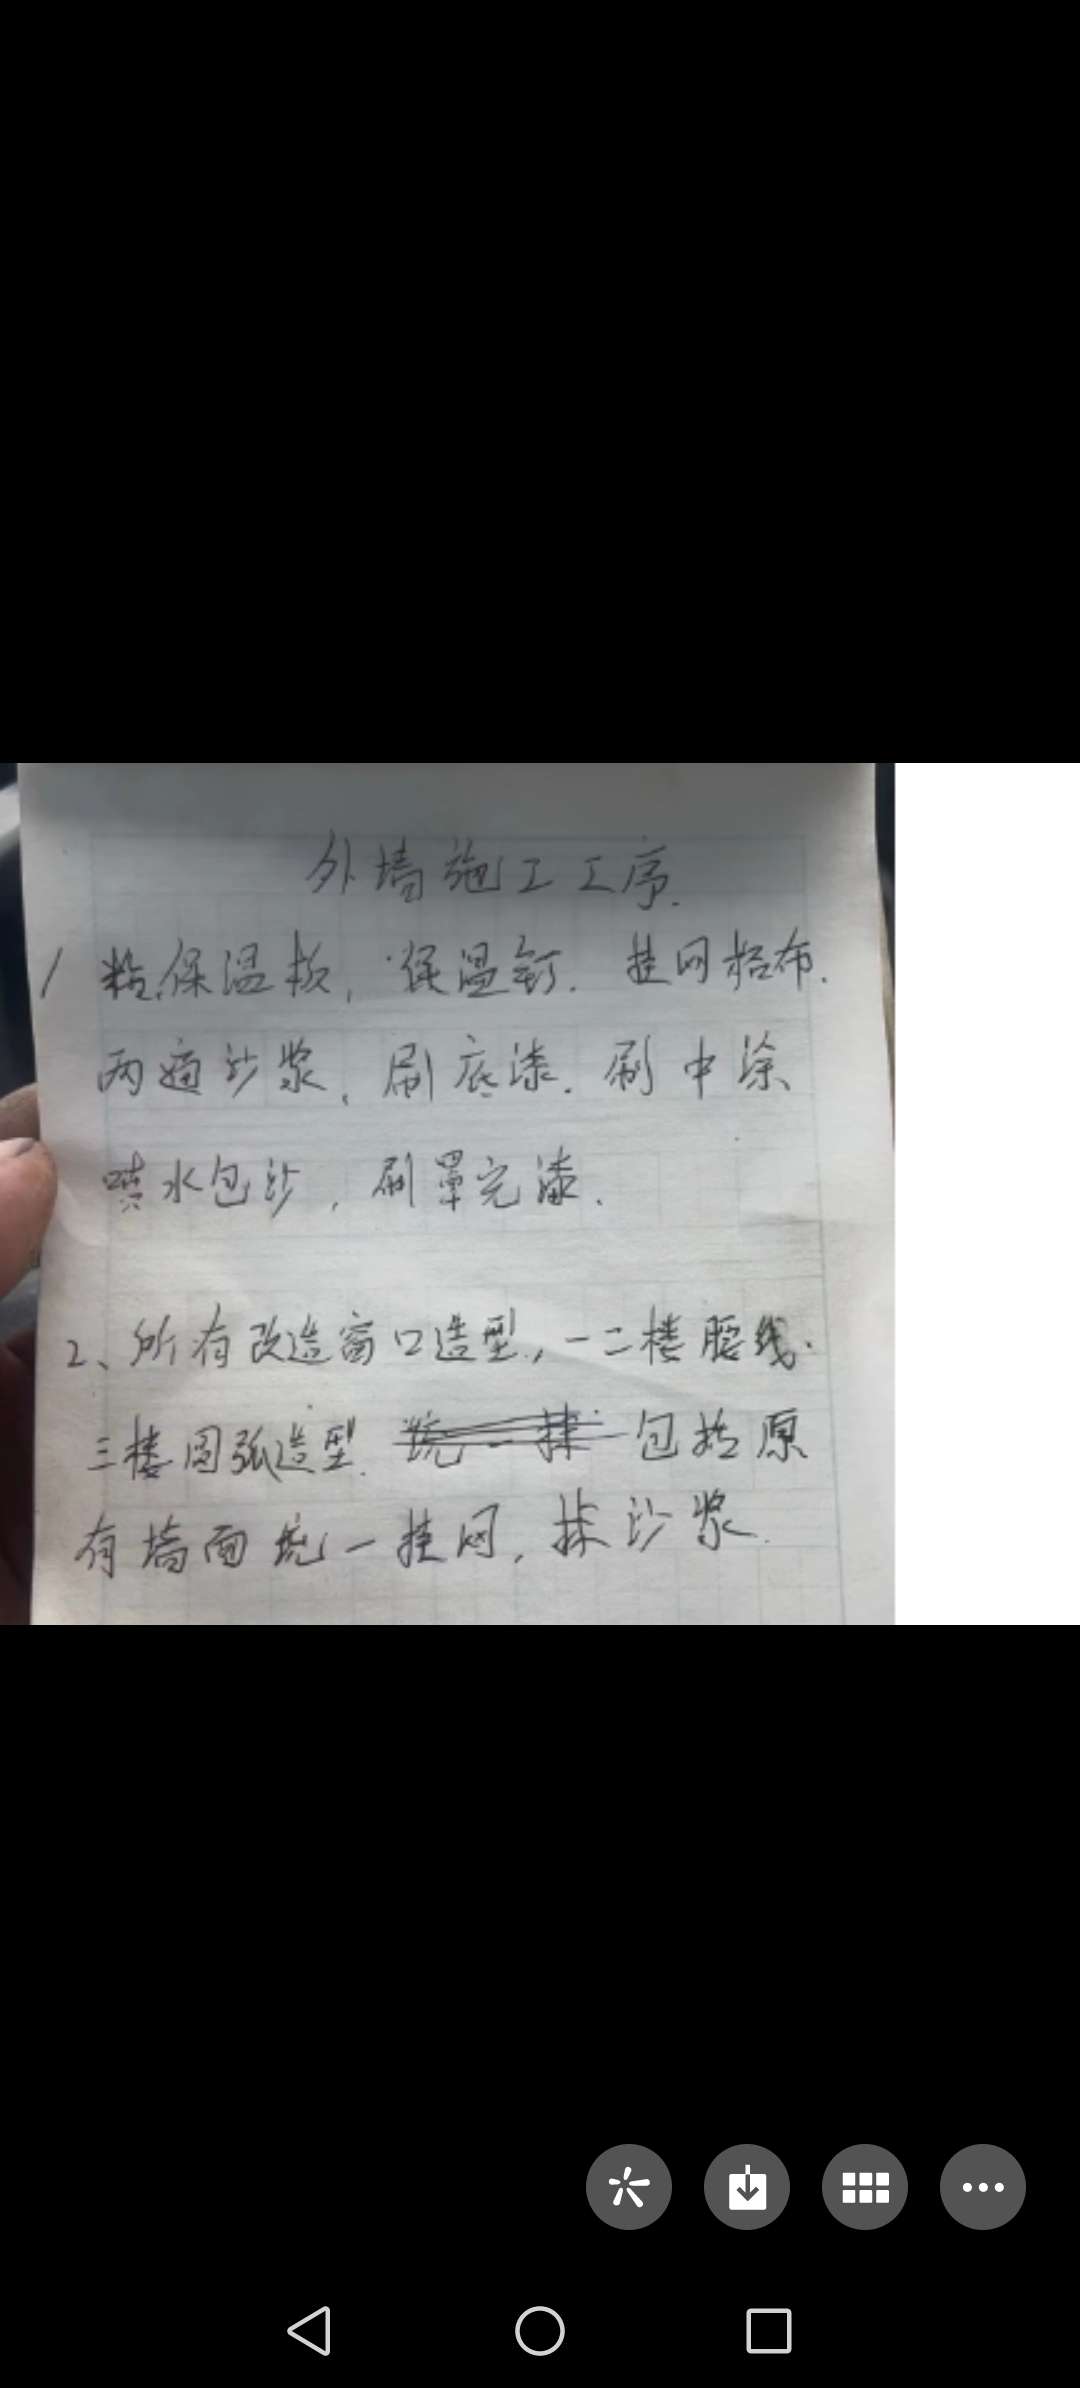 外墙施工工序.
1 粘保温板, 保温钉. 挂网粘布.
两遍沙浆、刷底漆. 刷中涂
喷水包沙, 刷罩完漆.
2、所有改造窗口造型, 一二楼腰线.
三楼圆弧造型. 统一抹 包括原
有墙面统一挂网, 抹沙浆.